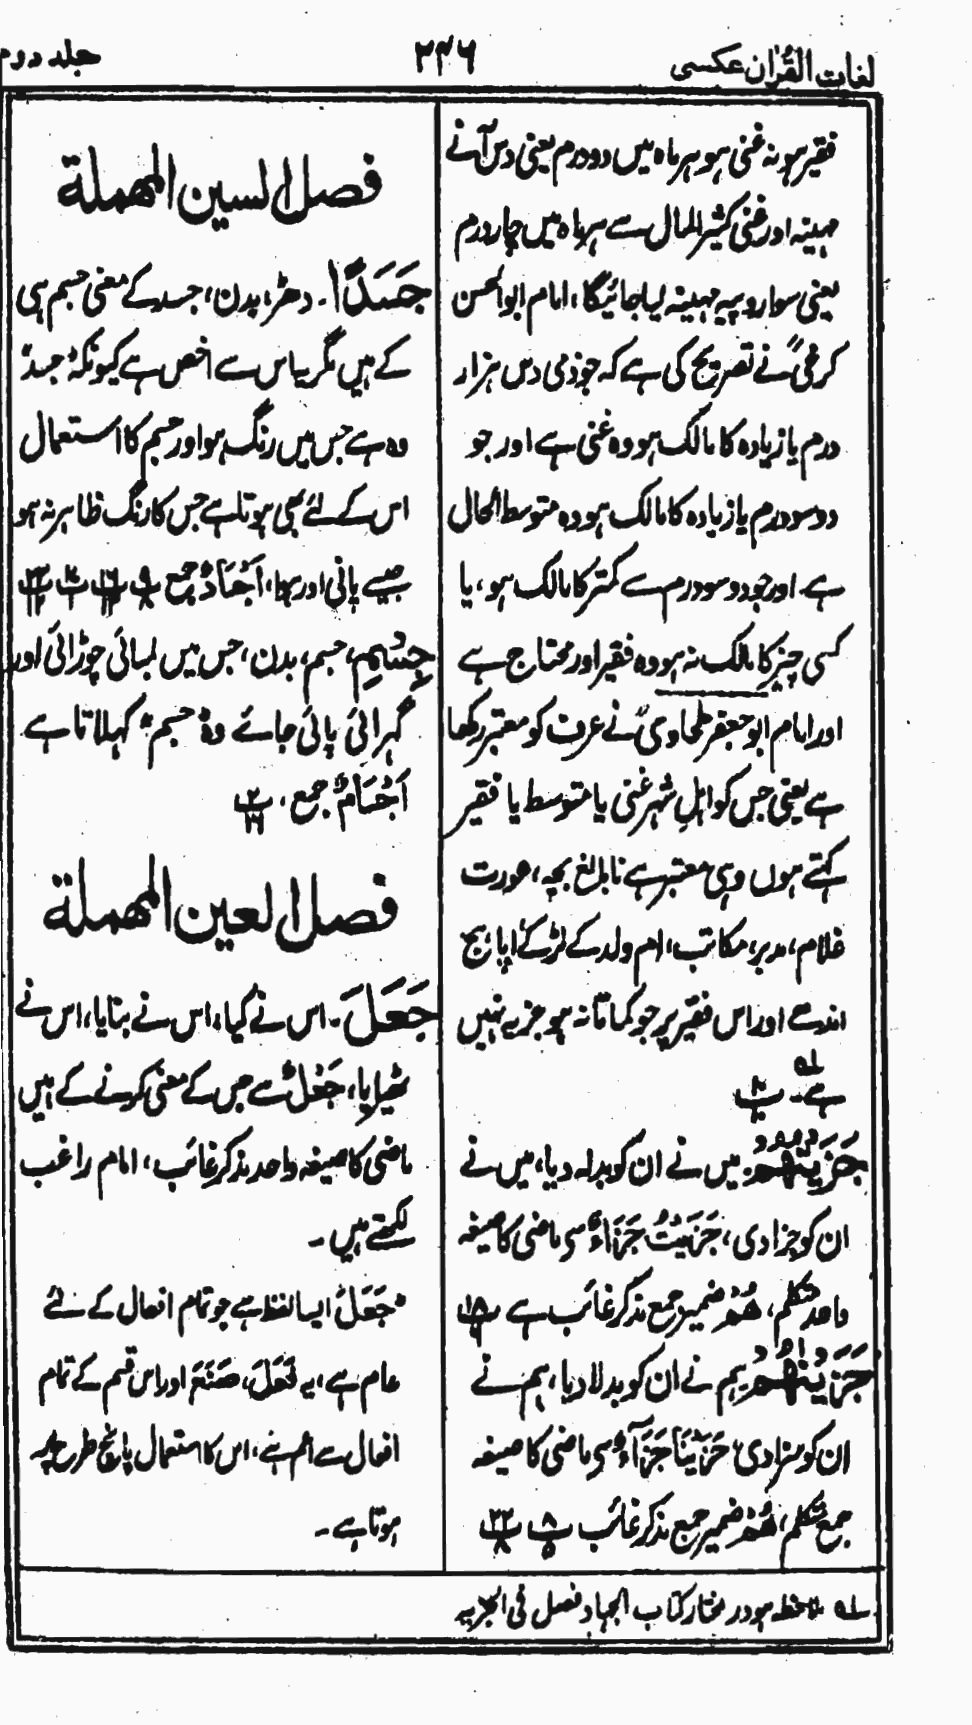 لغات القرآن عکسی
۲۴۶
جلد دوم
فقیر ہو نہ غنی ہو ہر ماہ میں دو درم یعنی دس آنے
مہینہ اور غنی کثیر المال سے ہر ماہ میں چار درم
یعنی سوا روپیہ مہینہ لیا جائیگا، امام ابو الحسن
کرخیؒ نے تصریح کی ہے کہ جو ذمی دس ہزار
درم یا زیادہ کا مالک ہو وہ غنی ہے اور جو
دو سو درم یا زیادہ کا مالک ہو وہ متوسط الحال
ہے۔ اور جو دو سو درم سے کمتر کا مالک ہو، یا
کسی چیز کا مالک نہ ہو وہ فقیر اور محتاج ہے
اور امام ابو جعفر طحاویؒ نے عرف کو معتبر رکھا
ہے یعنی جس کو اہلِ شہر غنی یا متوسط یا فقیر
کہتے ہوں وہی معتبر ہے نابالغ بچہ، عورت
غلام، مدبر، مکاتب، ام ولد کے لڑکے اپاہج
اندھے اور اس فقیر پر جو کماتا نہ ہو جزیہ نہیں
ہے۔ لہ پ۱۰
جَزَيْتُهُمْ۔ میں نے ان کو بدلہ دیا، میں نے
ان کو جزا دی، جَزَيْتُ جَزَاءٌ سے ماضی کا صیغہ
واحد متکلم، هُمْ ضمیر جمع مذکر غائب ہے پ۱۸
جَزَيْنٰهُمْ۔ ہم نے ان کو بدلا دیا، ہم نے
ان کو سزا دی، جَزَيْنَا جَزَآءٌ سے ماضی کا صیغہ
جمع متکلم، هُمْ ضمیر جمع مذکر غائب پ۸ ۵ پ۲۲ ۸
فصل السین المهملة
جَسَدًا۔ دھڑ، بدن، جسد کے معنی جسم ہی
کے ہیں مگر یہ اس سے اخص ہے کیونکہ جسد
وہ ہے جس میں رنگ ہو اور جسم کا استعمال
اس کے لئے بھی ہوتا ہے جس کا رنگ ظاہر نہ ہو
جیسے پانی اور ہوا، اَجْسَادٌ جمع پ۹ ۸ پ۱۶ پ پ۲۳
جِسْمِ، جسم، بدن، جس میں لمبائی چوڑائی اور
گہرائی پائی جائے وہ جسم کہلاتا ہے
اَجْسَامٌ جمع، پ۲ ۱۶
فصل العین المهملة
جَعَلَ۔ اس نے کیا، اس نے بنایا، اس نے
ٹھہرایا، جَعْلٌ سے جس کے معنی کرنے کے ہیں
ماضی کا صیغہ واحد مذکر غائب، امام راغب
لکھتے ہیں۔
"جَعَلَ ایسا لفظ ہے جو تمام افعال کے لئے
عام ہے، یہ فَعَلَ، صَنَعَ اور اس قسم کے تمام
افعال سے اعم ہے، اس کا استعمال پانچ طرح پر
ہوتا ہے۔
لہ ملاحظہ ہو در مختار کتاب الجہاد فصل فی الجزیہ